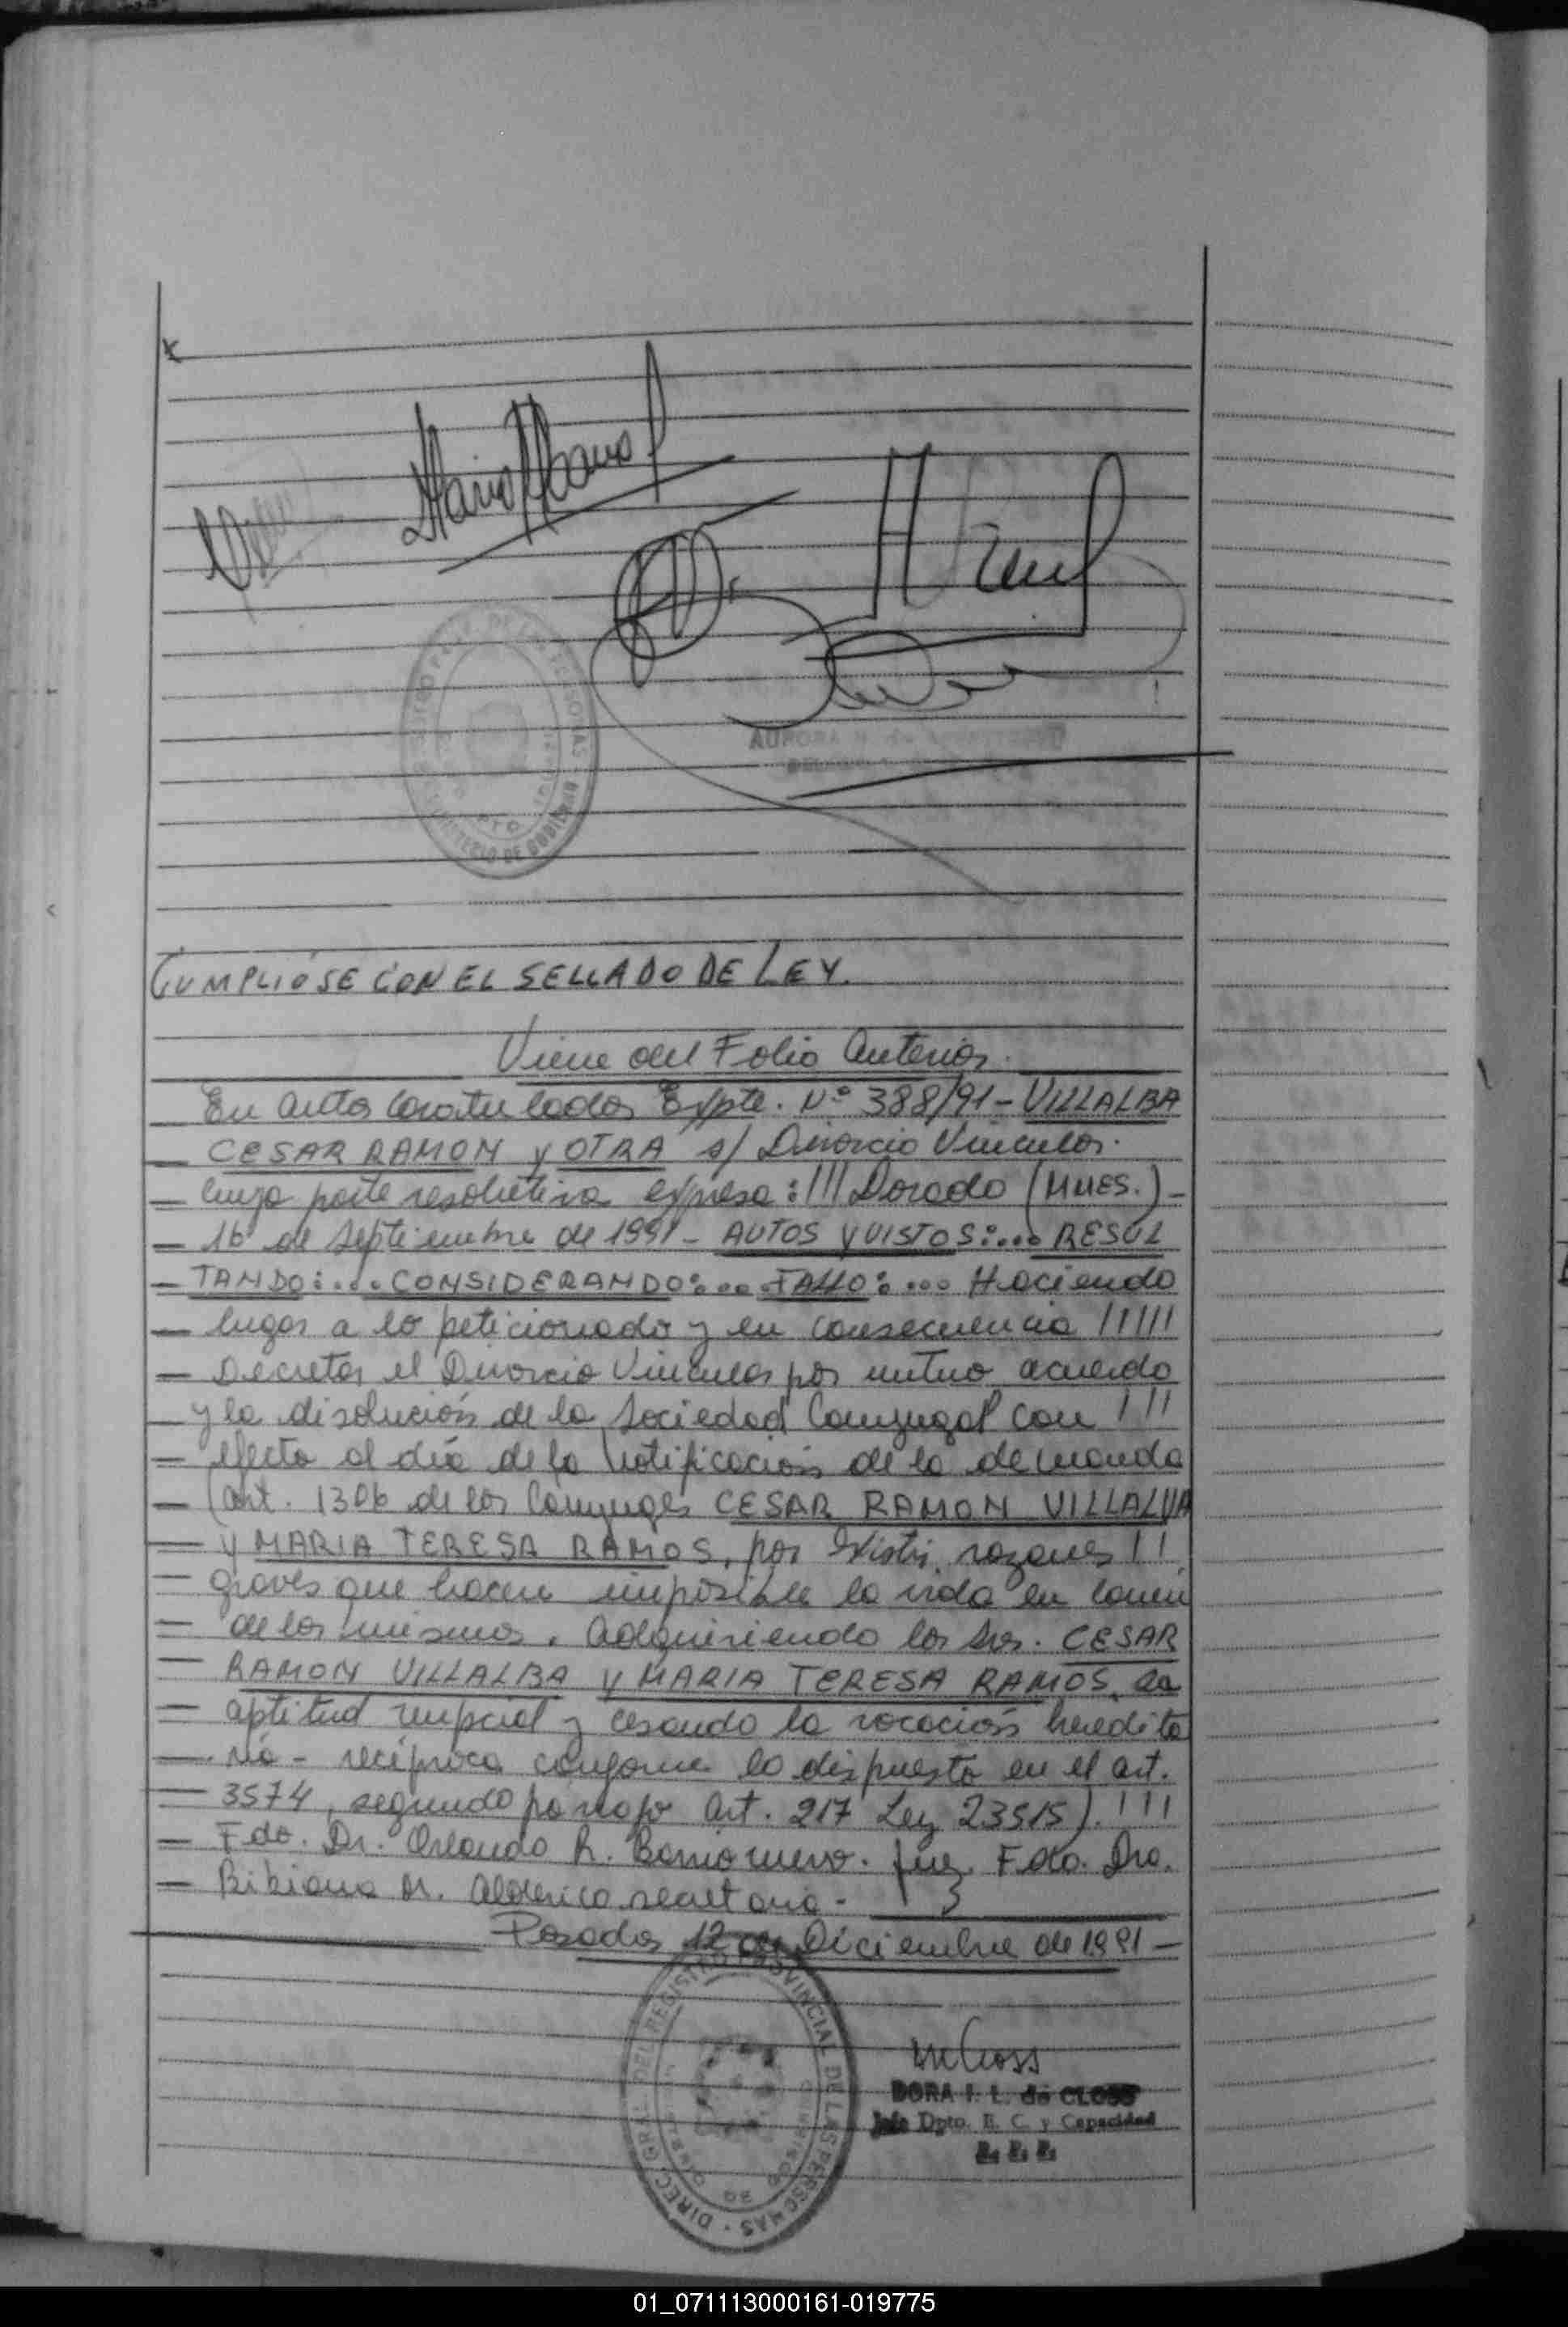 CUMPLIÓSE CON EL SELLADO DE LEY.
Viene del Folio Anterior.
En autos caratulados Expte. Nº 388/91 - VILLALBA
CESAR RAMON y OTRA s/ Divorcio Vincular.
cuya parte resolutiva expresa: !!! Dorado (MNES.) -
16 de septiembre de 1991 - AUTOS Y VISTOS:... RESUL
TANDO:... CONSIDERANDO:... FALLO:... Haciendo
lugar a lo peticionado y en consecuencia !!!!!
Decretar el Divorcio Vincular por mutuo acuerdo
y la disolución de la Sociedad Conyugal con !!!
efecto al día de la notificación de la demanda
(art. 1306 de los Cónyuges CESAR RAMON VILLALVA
y MARIA TERESA RAMOS, por Existir razones !!
graves que hacen imposible la vida en comun
de los mismos. Adquiriendo los Sres. CESAR
RAMON VILLALBA y MARIA TERESA RAMOS, la
aptitud nupcial y cesando la vocación heredita
ria - recíproca conforme lo dispuesto en el art.
3574, segundo párrafo art. 217 Ley 23515). !!!
Fdo. Dr. Orlando R. Barrionuevo. Juez. Fdo. Dra.
Bibiana M. Alderico secretaria -
Posadas 12 de Diciembre de 1991 -
DIREC. GRAL. DEL REGISTRO PROVINCIAL DE LAS PERSONAS
MINISTERIO DE GOBIERNO
DORA I. L. de CLOSS
Jefe Dpto. E. C. y Capacidad
01_071113000161-019775